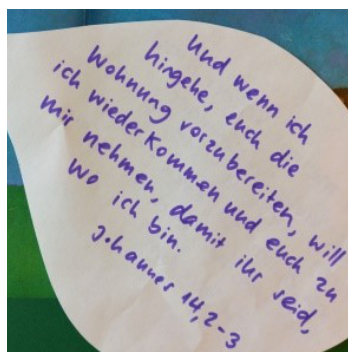 Und wenn ich
hingehe, euch die
Wohnung vorzubereiten, will
ich wiederkommen und euch zu
mir nehmen, damit ihr seid,
wo ich bin.
Johannes 14,2-3